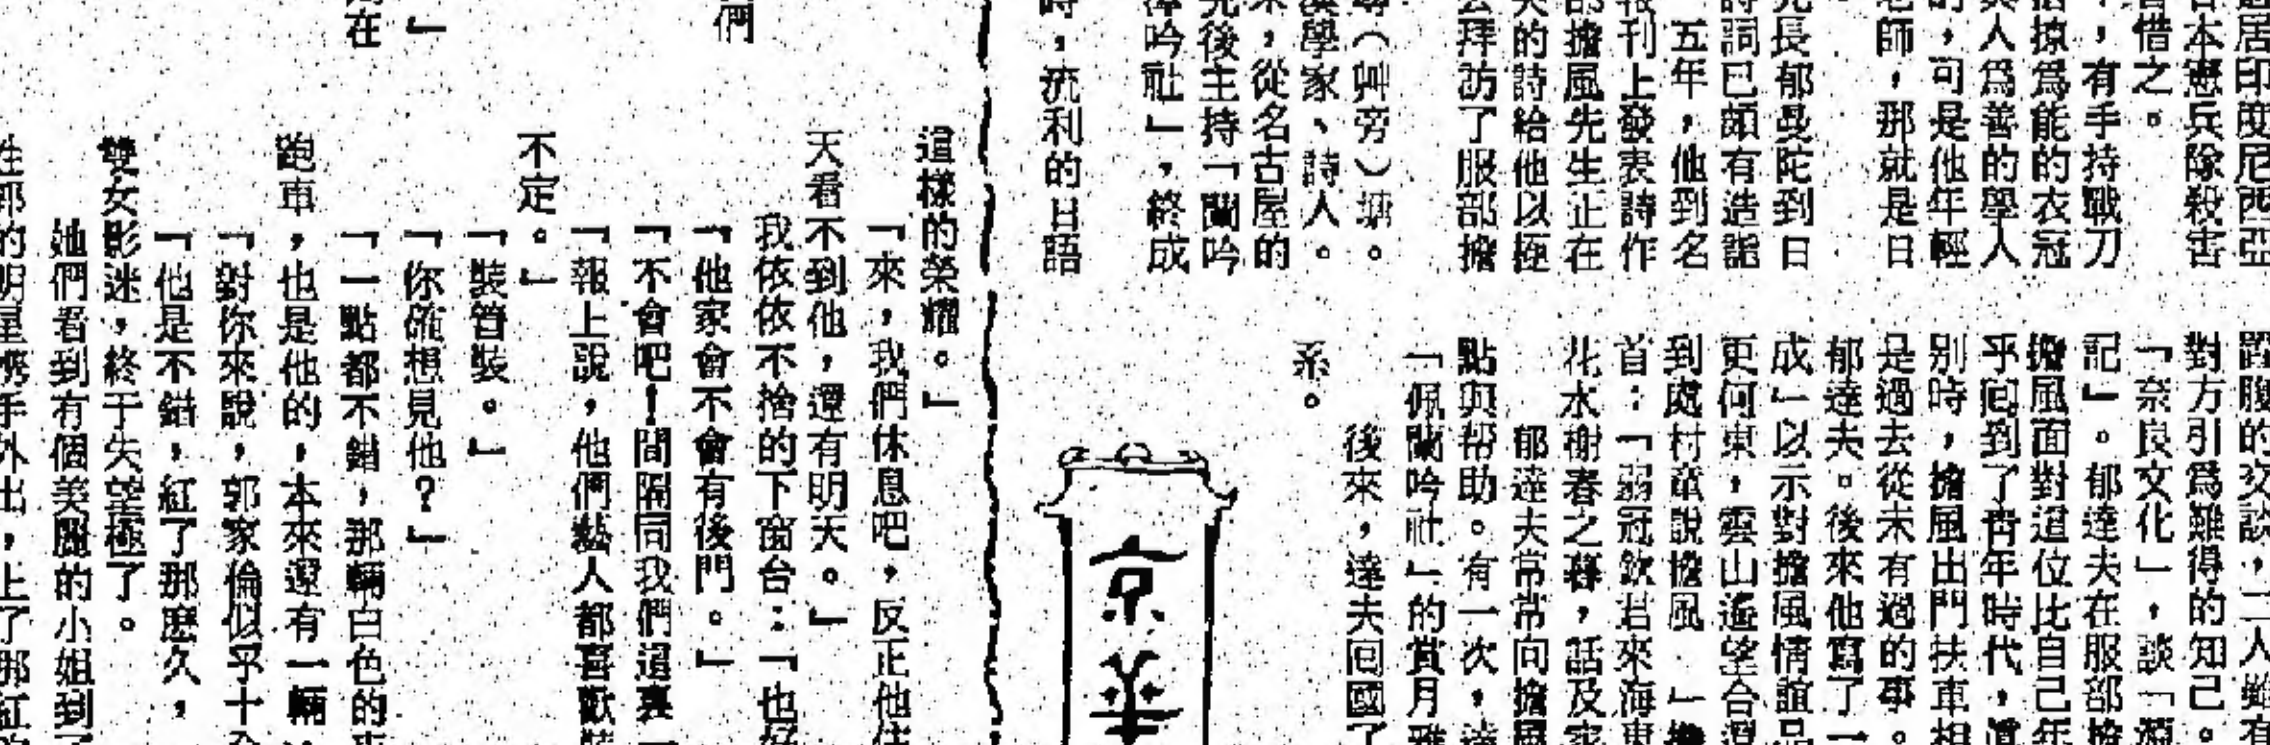 居印度尼西亞
日本憲兵除殺害
惜之。
,有手持戰刀
掠爲能的衣冠
人爲善的學人
的,可是他年輕
老師,那就是日
兄長郁曼陀到日
詩詞已頗有造詣
五年,他到名
報刊上發表詩作
的擔風先生正在
的詩給他以極
去拜訪了服部擔
(艸旁)塘。
漢學家、詩人。
來,從名古屋的
先後主持「蘭吟
吟社」,終成
時,流利的日語
的交談,二人雖有
對方引爲難得的知己。
「奈良文化」,談「源
記」。郁達夫在服部擔
擔風面對這位比自己年
乎回到了青年時代,眞
別時,擔風出門扶車相
是過去從未有過的事。
郁達夫。後來他寫了一
成」以示對擔風情誼品
更何東,雲山遙望合還
到處村童說擔風.」擔
首:「弱冠欽君來海東
花水榭春之暮,話及家
郁達夫常常向擔風
點與帮助。有一次,達
「佩蘭吟社」的賞月雅
後來,達夫回國了
系。
京華
們
」
在
這樣的榮耀。」
「來,我們休息吧,反正他住
天看不到他,還有明天。」
我依依不捨的下窗台:「也好
「他家會不會有後門。」
「不會吧!間隔同我們這裏一
「報上說,他們藝人都喜歡裝
不定。」
「裝管裝。」
「你確想見他?」
「一點都不錯,那輛白色的
跑車,也是他的,本來還有一輛
「對你來說,郭家倫似乎十分
「他是不錯,紅了那麽久,
雙女影迷,終于失望極了。
她們看到有個美麗的小姐到了
姓郭的明星携手外出,上了那紅